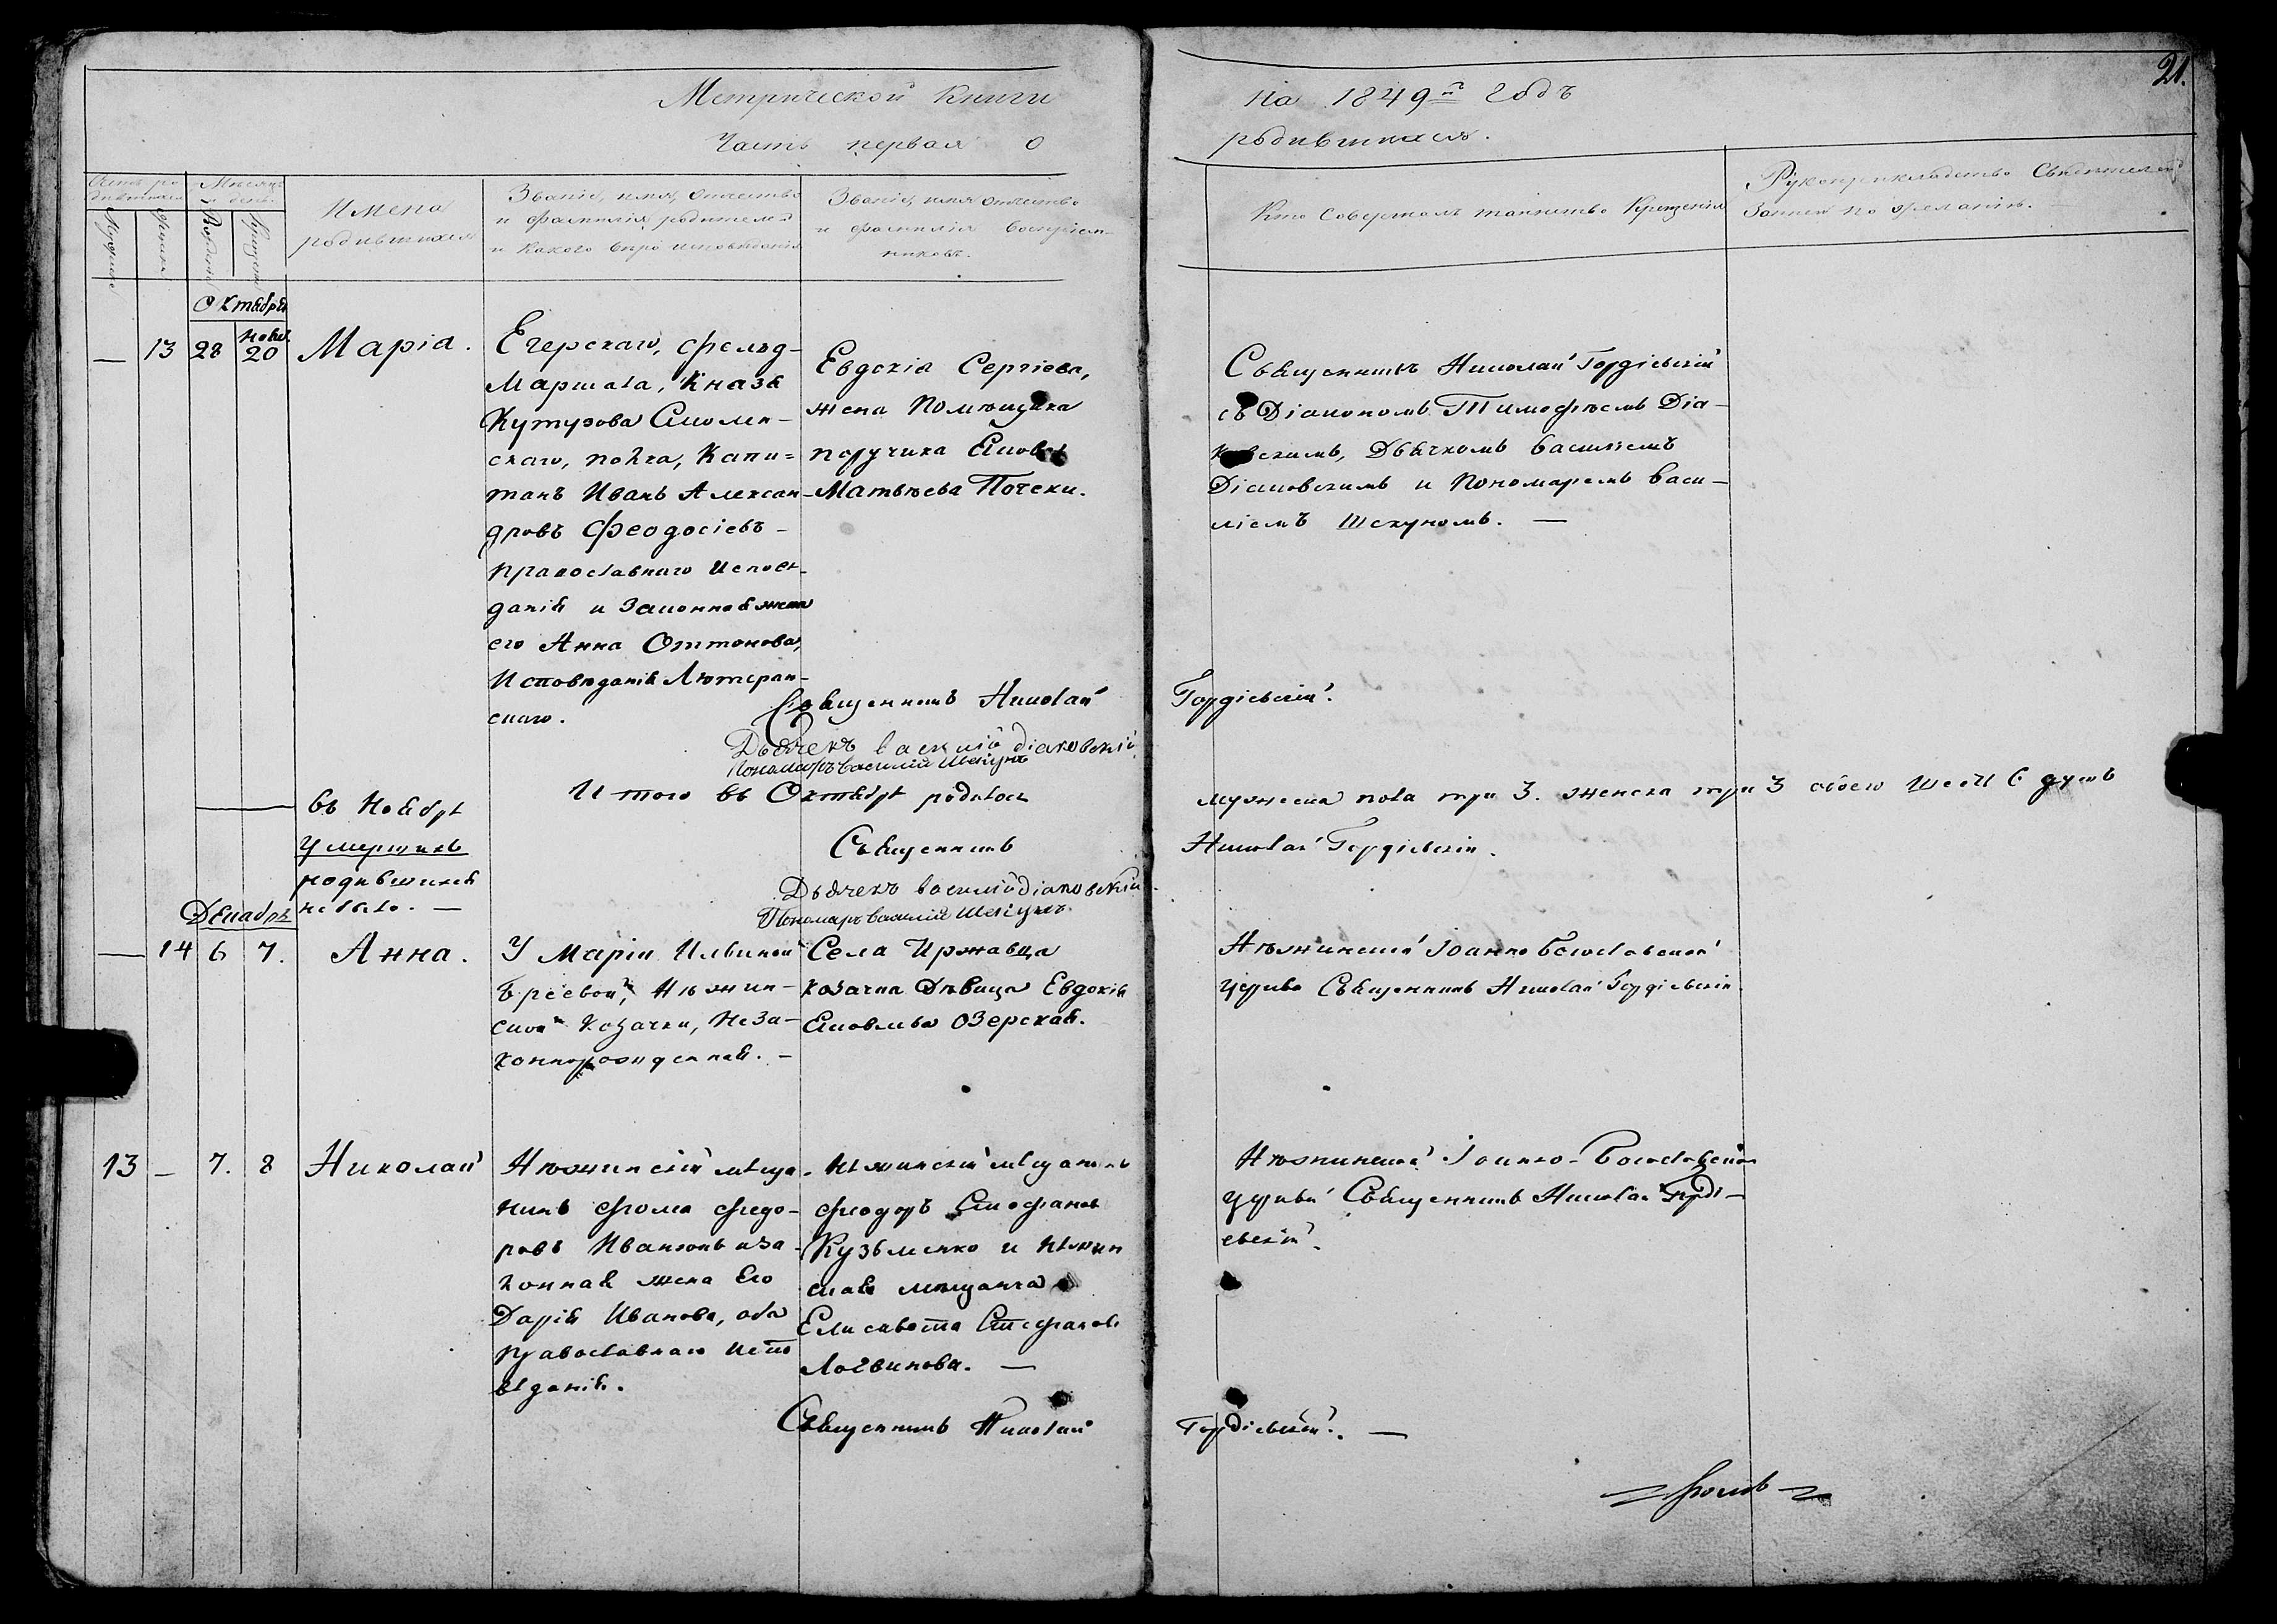 21.
Метрической Книги на 1849й годъ
Часть первая о родившихся.
Счетъ родившихся
Мужеска
Женска
Мѣсяцъ и день
Рожденія
Крещенія
Имена
родившихся
Званіе, имя, отчество
и фамилія родителей
и какого вѣроисповѣданія
Званіе, имя отчество
и фамилія воспріем-
никовъ.
Кто совершалъ таинство Крещенія
Рукоприкладство Свидѣтелей
записи по желанію.
Октября
— 13 28 Нояб. 20
Марія.
Егерскаго, фельд-
маршала, Князя
Кутузова Смолен-
скаго, полка, Капи-
танъ Иванъ Алексан-
дровъ Феодосіевъ -
православнаго Исповѣ-
данія и Законная жена
его Анна Оттонова,
Исповѣданія Лютеран-
скаго.
Евдокія Сергіева,
жена помѣщика
поручика Яковъ
Матвѣева Почеки.
Священникъ Николай Гордіевскій
съ Діакономъ Тимофѣемъ Діа-
ковскимъ, Дьячкомъ Василіемъ
Діаковскимъ и Пономаремъ Васи-
ліемъ Шекуномъ. —
Священникъ Николай Гордіевскій.
Дьячекъ Василій Діаковскій
Пономарь Василій Шекунъ
Итого въ Октябрѣ родилось мужеска пола три 3. женска три 3 обоего шесть 6 душъ
Въ Ноябрѣ
умершихъ
родившихся
не было. —
Священникъ Николай Гордіевскій.
Дьячекъ Василій Діаковскій.
Пономарь Василій Шекунъ.
Декабрь
— 14 6 7.
Анна.
У Маріи Ильиной
Нѣжин-
ской Козачки, Неза-
коннорожденная. —
Села Иржавца
козачка Дѣвица Евдокія
Яковлева Озерская.
Нѣжинской Іоанно Богословской
церкви Священникъ Николай Гордіевскій
13 — 7. 8
Николай
Нѣжинскій мѣща-
нинъ Фома Федо-
ровъ и за-
конная жена Его
Дарія Иванова, оба
православнаго Испо
вѣданія.
Нѣжинскій мѣщанинъ
Феодоръ Стефановъ
Кузьменко и Нѣжин
ская мѣщанка
Елисавета Стефанова
Логвинова. —
Нѣжинской Іоанно-Богословской
церкви Священникъ Николай Горді-
евскій.
Священникъ Николай Гордіевскій. —